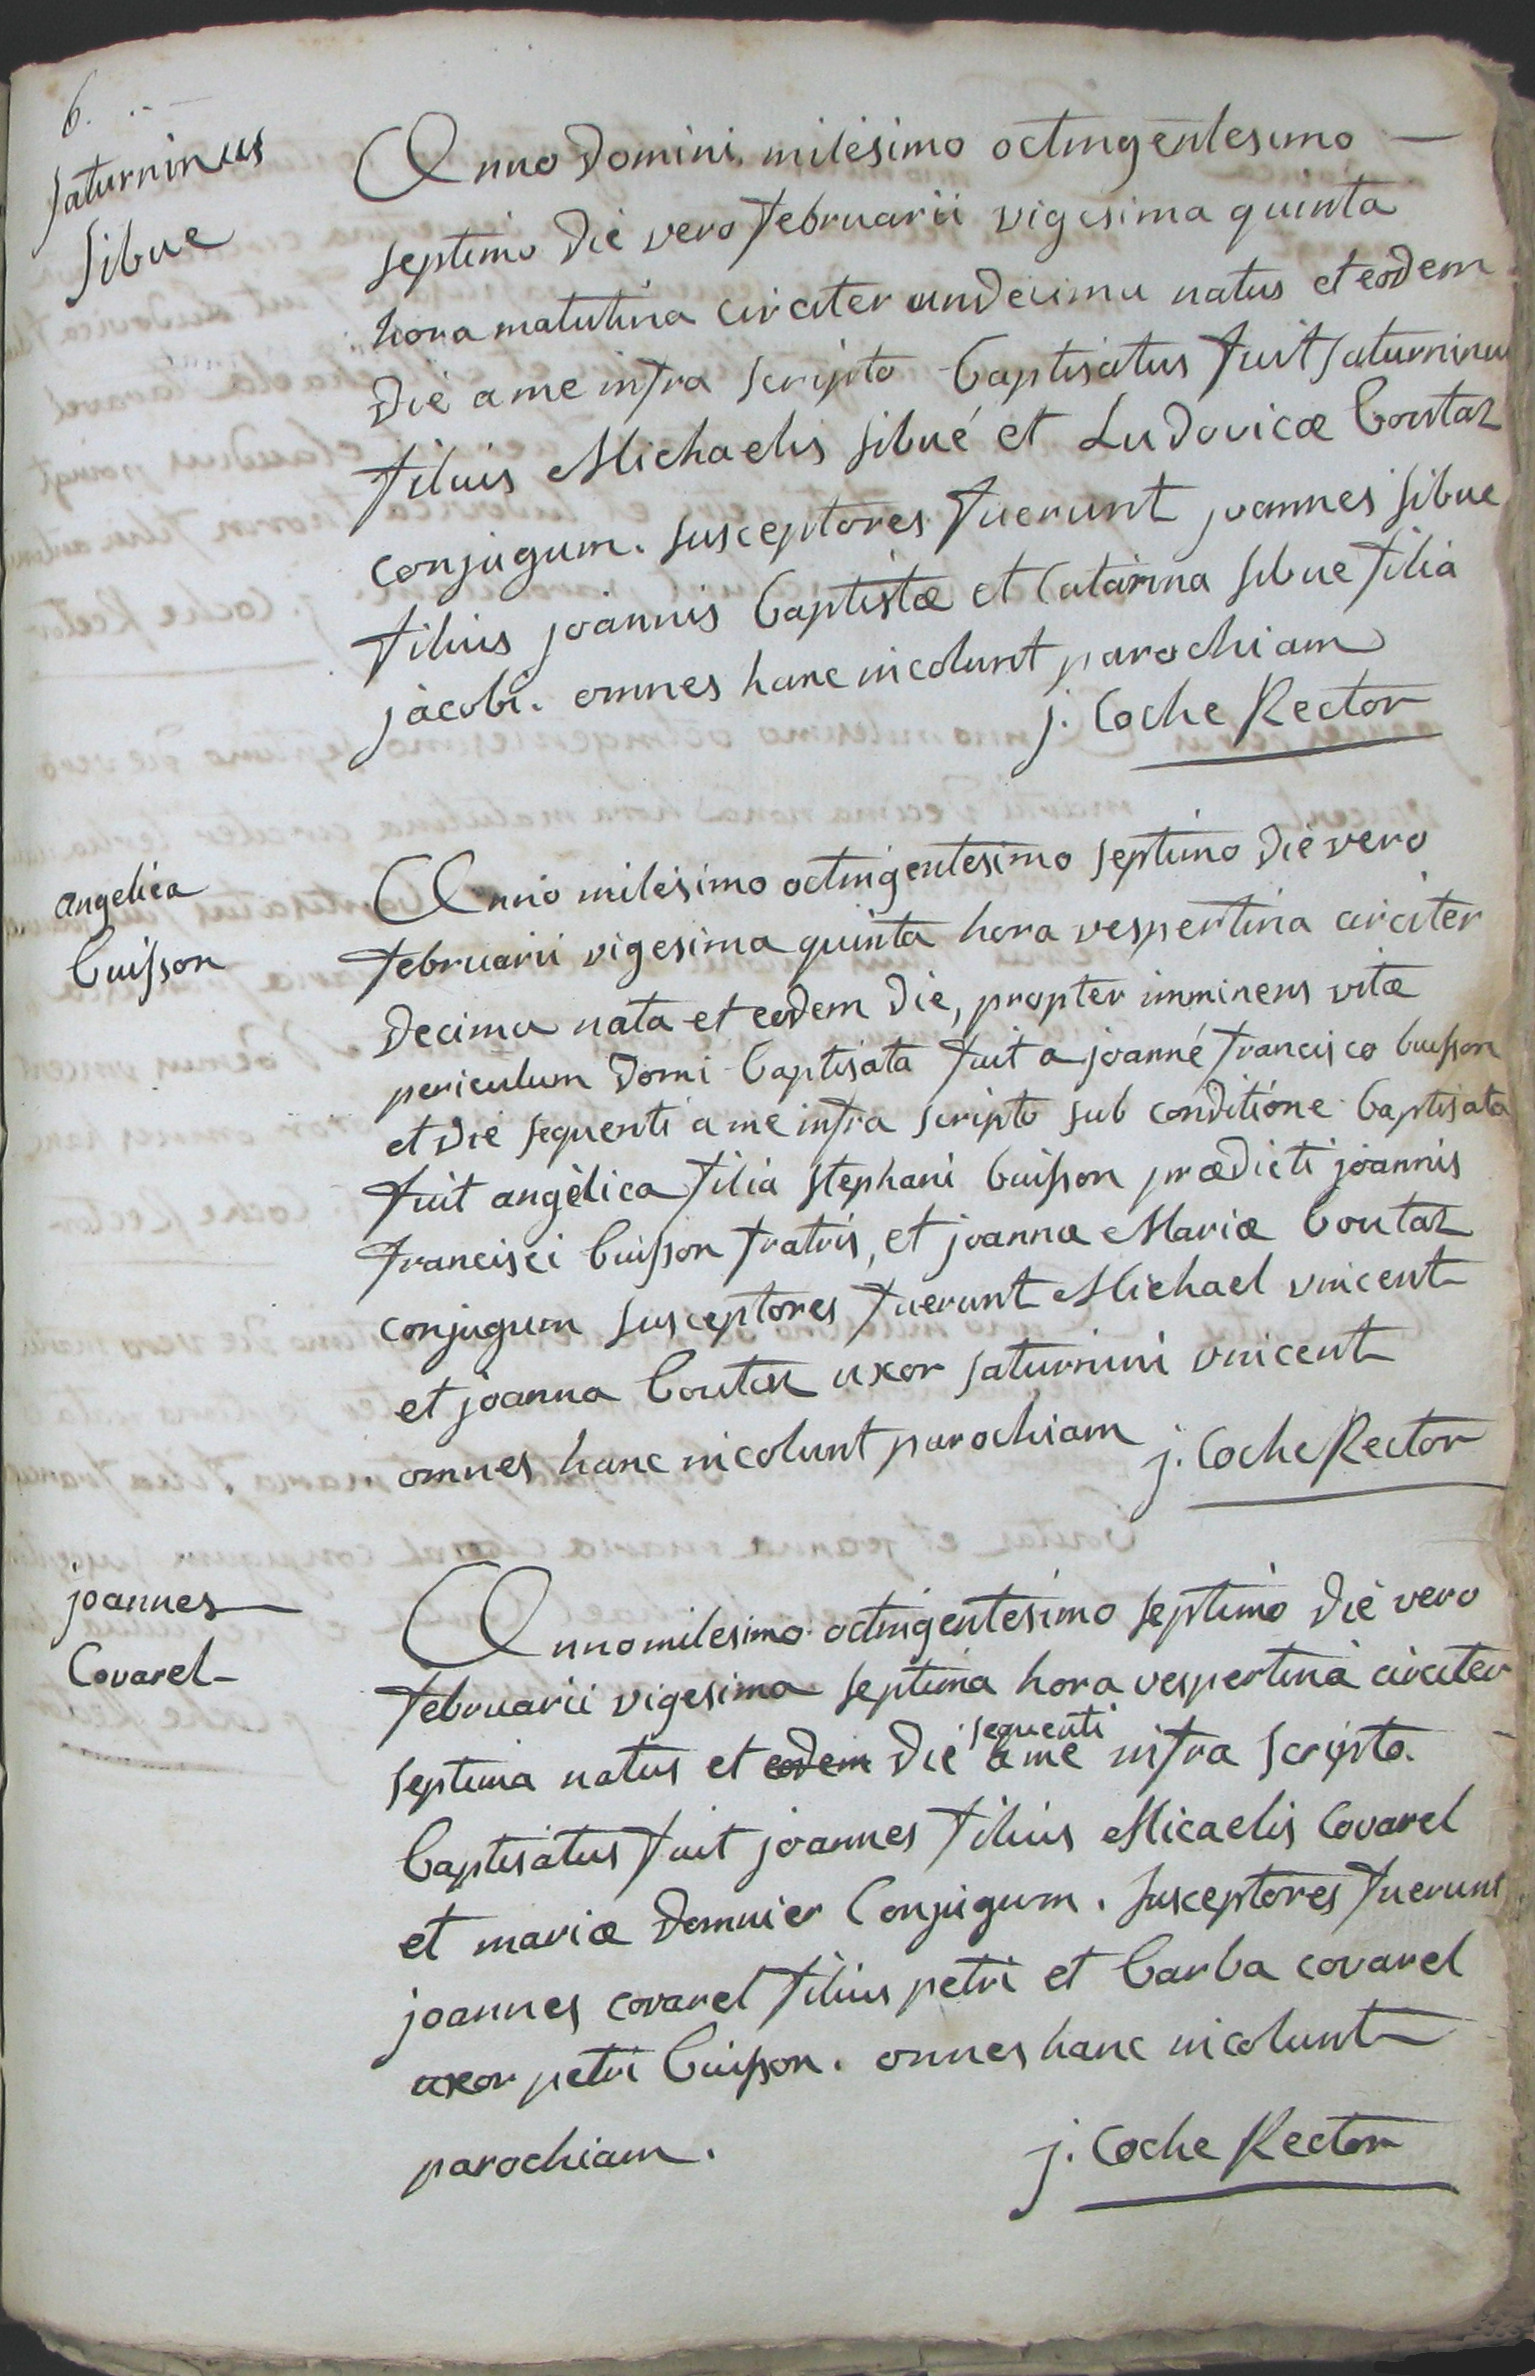 6.
Saturninus
Sibue
Anno Domini milesimo octingentesimo —
septimo die vero februarii vigesima quinta
hora matutina circiter undecima natus et eodem
die a me infra scripto baptisatus fuit saturninus
filius Michaelis sibué et Ludovicæ boutaz
conjugum. susceptores fuerunt joannes sibue
filius joannis baptistæ et Catarina sibue filia
jacobi. omnes hanc incolunt parochiam
j. Coche Rector
angelica
buisson
Anno milesimo octingentesimo septimo die vero
februarii vigesima quinta hora vespertina circiter
decima nata et eodem die, propter imminens vitæ
periculum domi baptisata fuit a joanne francisco buisson
et die sequenti a me infra scripto sub conditione baptisata
fuit angelica filia stephani buisson prædicti joannis
francisci buisson fratris, et joannæ Mariæ boutaz
conjugum susceptores fuerunt Michael vincent
et joanna boutaz uxor saturnini vincent
omnes hanc incolunt parochiam
j. Coche Rector
joannes
Covarel
Anno milesimo octingentesimo septimo die vero
februarii vigesima septima hora vespertina circiter
septima natus et eodem die sequenti a me infra scripto
baptisatus fuit joannes filius Micaelis Covarel
et mariæ domnier Conjugum. susceptores fuerunt
joannes covarel filius petri et barba covarel
uxor petri buisson. omnes hanc incolunt
parochiam.
j. Coche Rector